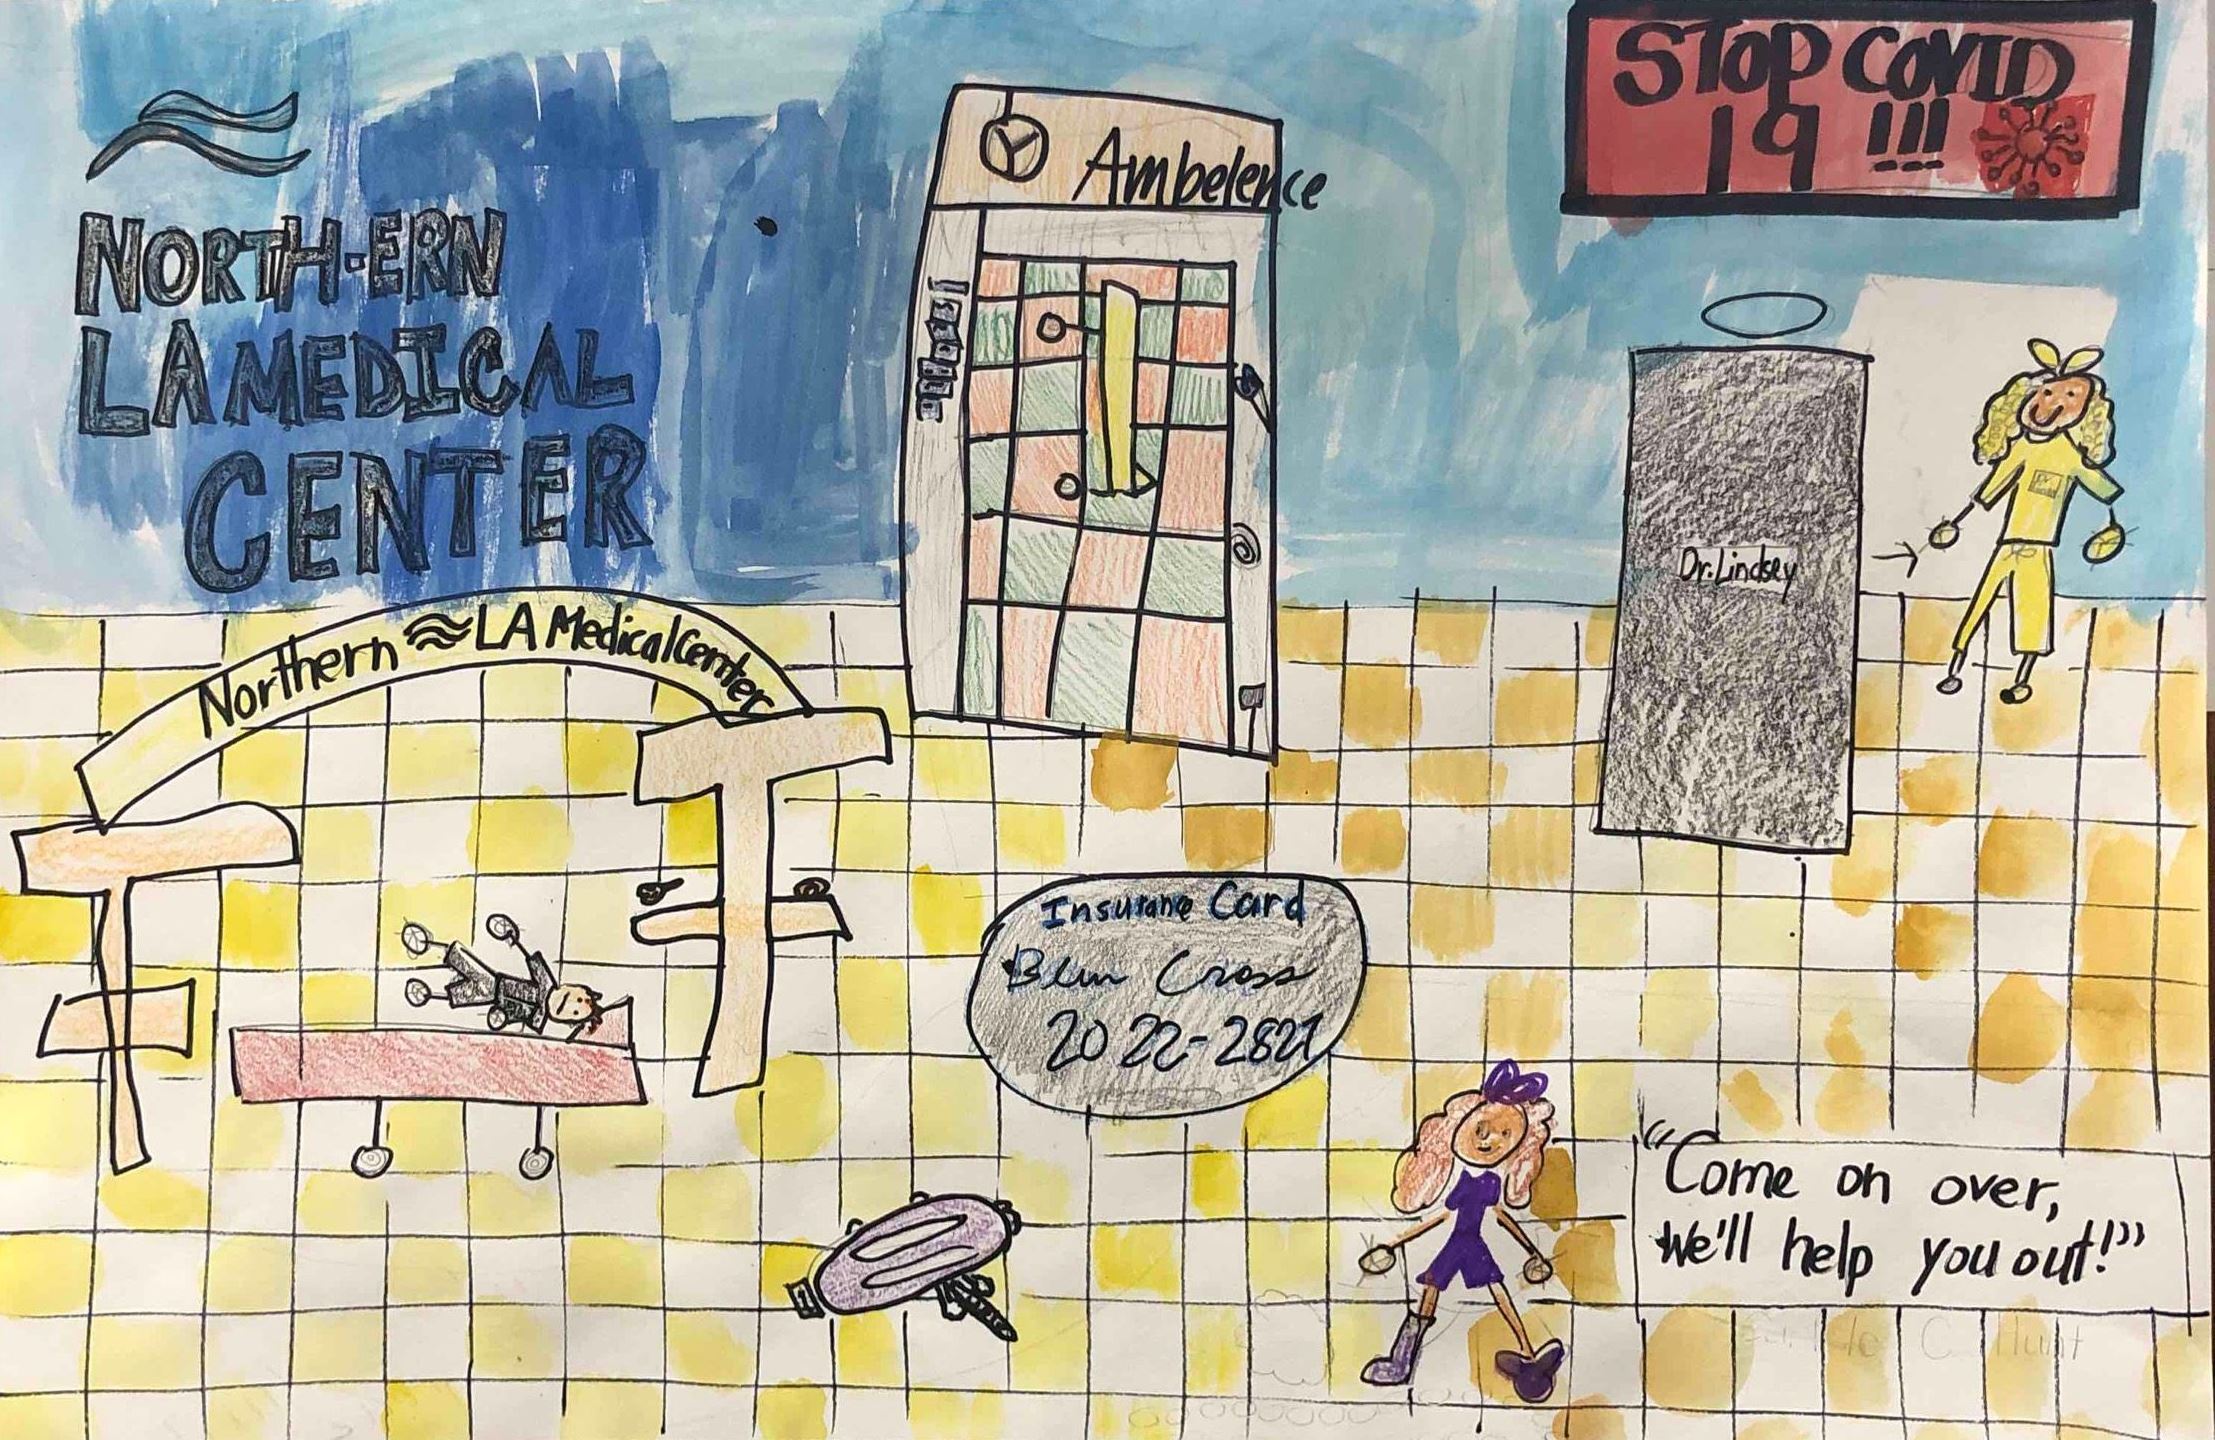 NORTH-ERN
LA MEDICAL
CENTER
Ambelence
STOP COVID
19 !!!
Dr. Lindsey
Northern LA Medical Center
Insurane Card
Cross
2022-2827
"Come on over,
We'll help you out!"